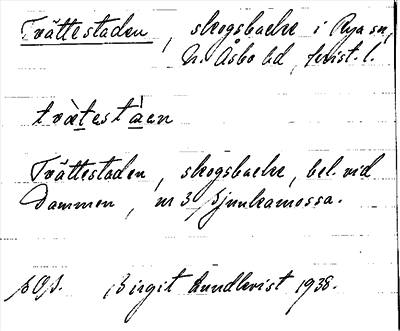 Tvättestaden, skogsbacke i Rya sn,
N. Åsbo hd, Krist. l.
tvä̀testáen
Tvättestaden, skogsbacke, bel. vid
Dammen, nr 3 Sjunkamossa.
Birgit Lundkvist 1938.